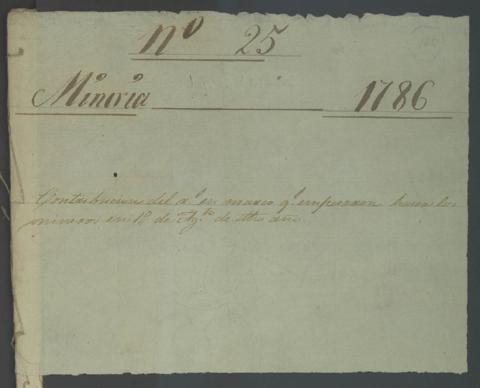 Nº 25
Minería 1786
Contribucion del r.l en marco q.e empezaron hacer los
mineros en 1º de Ag.to de dho año.